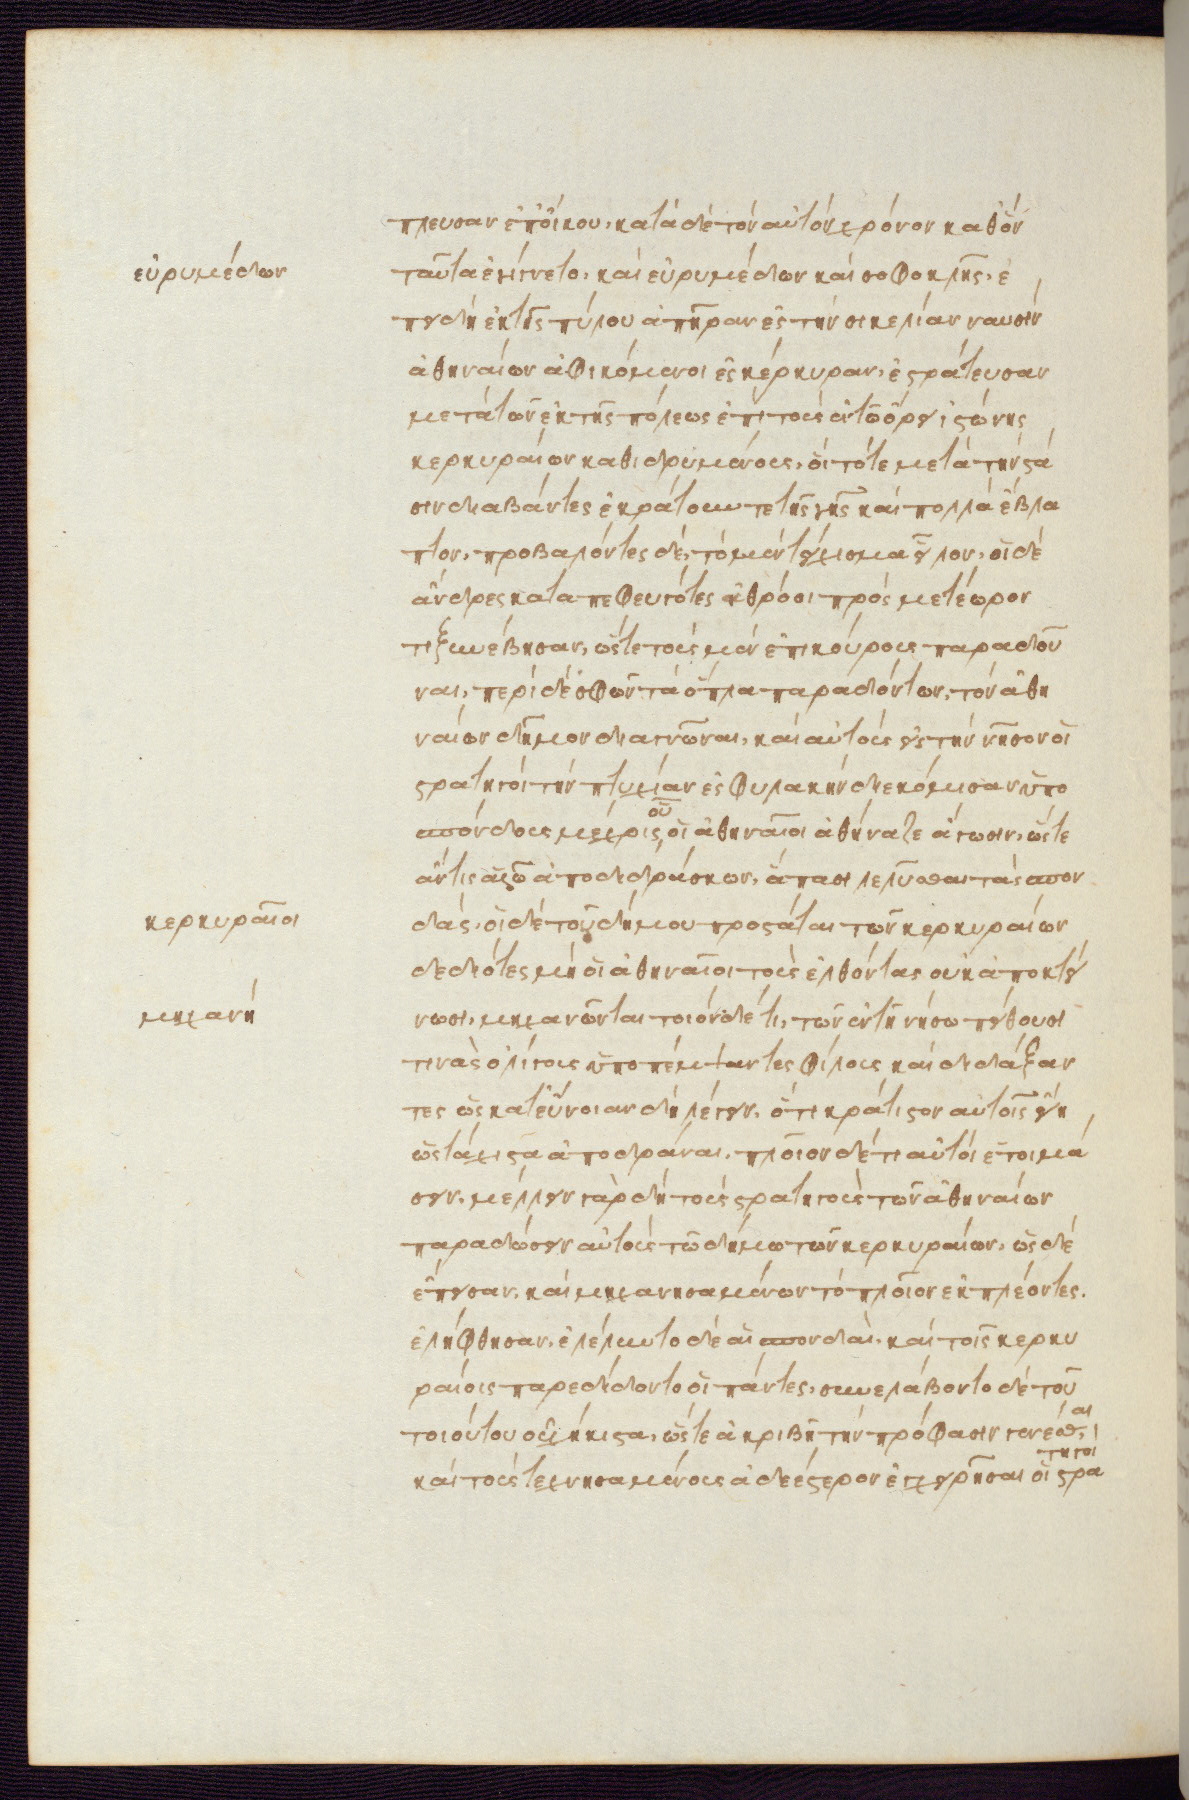 πλευσαν ἐπ' οἴκου, κατὰ δὲ τὸν αὐτὸν χρόνον καθ' ὃν
εὐρυμέδων
ταῦτα ἐγίγνετο, καὶ εὐρυμέδων καὶ σοφοκλῆς, ἐ
πειδὴ ἐκ τῆς πύλου ἀπῆραν ἐς τὴν σικελίαν ναυσὶν
ἀθηναίων ἀφικόμενοι ἐς κέρκυραν, ἐστράτευσαν
μετὰ τῶν ἐκ τῆς πόλεως ἐπὶ τοὺς ἐν τῶ ὄρει ἰστώνης
κερκυραίων καθιδρυμένους, οἳ τότε μετὰ τὴν στά
σιν διαβάντες ἐκράτουν τε τῆς γῆς καὶ πολλὰ ἔβλα
πτον, προβαλόντες δὲ, τὸ μὲν τείχισμα εἷλον, οἱ δὲ
ἄνδρες καταπεφευγότες ἀθρόοι πρὸς μετέωρον
τι ξυνέβησαν, ὥστε τοὺς μὲν ἐπικούρους παραδοῦ
ναι, περὶ δὲ σφῶν τὰ ὅπλα παραδόντων, τὸν ἀθη
ναίων δῆμον διαγνῶναι, καὶ αὐτοὺς εἰς τὴν νῆσον οἱ
στρατηγοὶ τὴν πτυχίαν ἐς φυλακὴν διεκόμισαν ὑπο
σπόνδους μέχρις οὗ οἱ ἀθηναῖοι ἀθήναζε ἄγωσιν, ὥστε
ἄν τις ἁλῶ ἀποδιδράσκων, ἅπασι λελῦσθαι τὰς σπον
κερκυραῖοι
δάς, οἱ δὲ τοῦ δήμου προστάται τῶν κερκυραίων
δεδιότες μὴ οἱ ἀθηναῖοι τοὺς ἐλθόντας οὐκ ἀποκτεί
μηχανή
νωσι, μηχανῶνται τοιόνδέ τι, τῶν ἐν τῆ νήσω πείθουσί
τινας ὀλίγους ὑποπέμψαντες φίλους καὶ διδάξαν
τες ὡς κατ' εὔνοιαν δὴ λέγειν, ὅτι κράτιστον αὐτοῖς εἴη
ὡς τάχιστα ἀποδρᾶναι, πλοῖον δέ τι αὐτοὶ ἑτοιμά
σειν, μέλλειν γὰρ δὴ τοὺς στρατηγοὺς τῶν ἀθηναίων
παραδώσειν αὐτοὺς τῶ δήμω τῶν κερκυραίων, ὡς δὲ
ἔπεισαν, καὶ μηχανησαμένων τὸ πλοῖον ἐκπλέοντες.
ἐλήφθησαν, ἐλέλυντο δὲ αἱ σπονδαὶ, καὶ τοῖς κερκυ
ραίοις παρεδίδοντο οἱ πάντες, συνελάβοντο δὲ τοῦ
τοιούτου οὐχ ἥκιστα, ὥστε ἀκριβῆ τὴν πρόφασιν γενέσθαι
καὶ τοὺς τεχνησαμένους ἀδεέστερον ἐγχειρῆσαι οἱ στρατηγοὶ